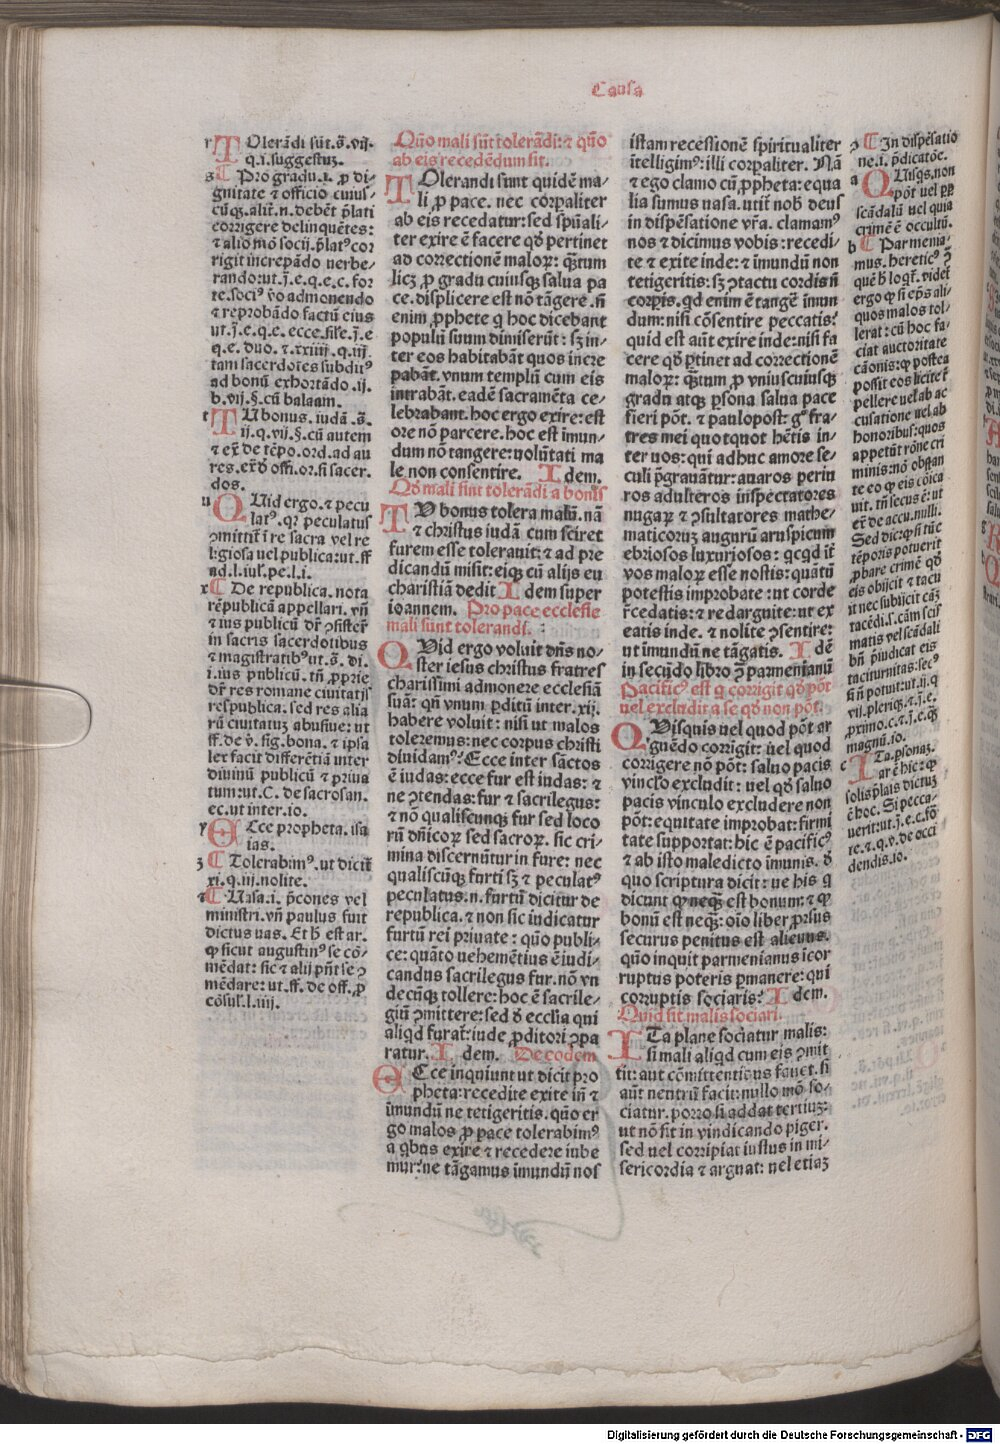 Causa
r TOlerãdi sũt.s̃.vij.
q.i.suggestuz.
s Pro gradu.i. ꝓ di⸗
gnitate ⁊ officio cuius⸗
cũqꝫ. alit̃.n.debẽt p̃lati
corrigere delinquẽtes:
⁊ alio mõ socij.p̃latꝰ cor
rigit increpãdo verbe⸗
rando:ut.j̃.e.q.e.c. for
te.sociꝰ ṽo admonendo
⁊ reprobãdo factũ eius
ut.j̃.e.q.e. ecce.sil̃e.j̃.e
q.e. duo. ⁊.xxiiij.q.iij
tam sacerdotes subditꝰ
ad bonũ exhortãdo.ij.
b.vij.§.cũ balaam.
t TU bonus. iudã .s̃.
ij.q.vij.§.cũ autem
⁊ ex̃.de tẽpo.ord.ad au
res.ex̃.ð offi.or.si sacer.
dos.
u QUid ergo.⁊ pecu
latꝰ. qꝛ peculatus
ꝯmittit̃ ĩ re sacra vel re
ligiosa uel publica:ut.ff
ad.l.iul̃.pe.l.i.
x De republica. nota
rẽpublicã appellari. vñ
⁊ ius publicũ dr̃ ꝯsister̃
in sacris sacerdotibus
⁊ magistratibꝰ ut.s̃. di.
i.ius publicũ. tñ ꝓprie
dr̃ res romane ciuitatis
respublica. sed res alia
rũ ciuitatuꝫ abusiue: ut
ff.de ṽ. sig.bona. ⁊ ipsa
lex facit differẽtiã inter
diuinũ publicũ ⁊ priua
tum:ut.C. de sacrosan.
ec.ut inter.io.
y ECce propheta. isa
ias.
z Tolerabimꝰ. ut dicit̃
xi.q.iij.nolite.
⁊ Uasa.i. p̃cones vel
ministri. vñ paulus fuit
dictus uas. Et h̃ est ar.
ꝙ sicut augustinꝰ se cõ⸗
mẽdat: sic ⁊ alij pñt se ꝯ
mẽdare: ut.ff. de off. ꝓ
cõsul̃.l.iiij.
Quõ mali sũt tolerãdi:⁊ quõ
ab eis recedẽdum sit.
TOlerandi sunt quidẽ ma⸗
li ꝓ pace. nec corꝑaliter
ab eis recedatur:sed spũali⸗
ter exire ẽ facere qð pertinet
ad correctionẽ maloꝝ: qꝫtum
licꝫ ꝓ gradu cuiusqꝫ salua pa
ce.displicere est nõ tãgere.ñ
enim ꝓphete q̃ hoc dicebant
populũ suum dimiserũt: sꝫ in⸗
ter eos habitabãt quos incre
pabãt. vnum templũ cum eis
intrabãt. eadẽ sacramẽta ce⸗
lebrabant.hoc ergo exire:est
ore nõ parcere. hoc est ĩmun⸗
dum nõ tangere: volũtati ma
le non consentire. Idem.
Qð mali sint tolerãdi a bonis
TU bonus tolera malũ. nã
⁊ christus iudã cum sciret
furem esse tolerauit: ⁊ ad pre
dicandũ misit: eiqꝫ cũ alijs eu
charistiã dedit Idem super
ioannem. Pro pace ecclesie
mali sunt tolerandi.
QUid ergo voluit dñs no⸗
ster iesus christus fratres
charissimi admonere ecclesiã
suã: qñ vnum ꝑditũ inter .xij.
habere voluit: nisi ut malos
toleremus: nec corpus christi
diuidamꝰ: Ecce inter sãctos
ẽ iudas: ecce fur est iudas: ⁊
ne ꝯtendas: fur ⁊ sacrilegus:
⁊ nõ qualiscunqꝫ fur sed loco
rũ dñicoꝝ sed sacroꝝ. sic cri⸗
mina discernũtur in fure: nec
qualiscũqꝫ furti sꝫ ⁊ peculatꝰ
peculatus.n. furtũ dicitur de
republica. ⁊ non sic iudicatur
furtũ rei priuate : quõ publi⸗
ce: quãto uehemẽtius ẽ iudi⸗
candus sacrilegus fur. nõ vn
decũqꝫ tollere: hoc ẽ sacrile⸗
giũ ꝯmittere: sed ð ecclia qui
aliqd furat̃: iude ꝓditori ꝯpa
ratur. Idem. De eodem
ECce inquiunt ut dicit pro
pheta: recedite exite iñ ⁊
ĩmundũ ne tetigeritis. quõ er
go malos ꝓ pace tolerabimꝰ
a qbus exire ⁊ recedere iube
mur: ne tãgamus ĩmundũ nos
istam recessionẽ spiritualiter
ĩtelligimꝰ: illi corꝑaliter. Nã
⁊ ego clamo cũ ꝓpheta: equa
lia sumus uasa. utit̃ nob̃ deus
in dispẽsatione vr̃a. clamamꝰ
nos ⁊ dicimus vobis : recedi⸗
te ⁊ exite inde: ⁊ ĩmundũ non
tetigeritis: sꝫ ꝯtactu cordis ñ
corꝑis. qd enim ẽ tangẽ ĩmun
dum: nisi cõsentire peccatis:
quid est aũt exire inde: nisi fa
cere qð ꝑtinet ad correctionẽ
maloꝝ: qꝫtum ꝓ vniuscuiusqꝫ
gradu atqꝫ ꝑsona salua pace
fieri põt. ⁊ paulopost: gͦ fra⸗
tres mei quotquot hẽtis in⸗
ter uos: qui adhuc amore se⸗
culi p̃grauãtur: auaros periu
ros adulteros inspectatores
nugaꝝ ⁊ ꝯsultatores mathe⸗
maticoruꝫ augurũ aruspicum
ebriosos luxuriosos : qcqd it̃
vos maloꝝ esse nostis: quãtũ
potestis improbate: ut corde
r̃cedatis: ⁊ redarguite: ut ex
eatis inde. ⁊ nolite ꝯsentire:
ut ĩmundũ ne tãgatis. Idẽ
in secũdo libro ꝯ̃ parmenianũ
Pacificꝰ est q corrigit qð põt
uel excludit a se qð non põt.
QUisquis uel quod põt ar
guẽdo corrigit: uel quod
corrigere nõ põt: saluo pacis
vinclo excludit : uel qð saluo
pacis vinculo excludere non
põt: equitate improbat: firmi
tate supportat: hic ẽ pacificꝰ
⁊ ab isto maledicto ĩmunis. ð
quo scriptura dicit: ue his q
dicunt ꝙ neqꝫ est bonum: ⁊ ꝙ
bonũ est neqꝫ: oĩo liber ꝓrsus
securus penitus est alienus.
quõ inquit parmenianus ĩcor
ruptus poteris ꝑmanere: qui
corruptis sociaris: Idem.
Quid sit malis sociari.
ITa plane sociatur malis:
si mali aliqd cum eis ꝯmit
tit: aut cõmittentibus fauet. si
aũt neutrũ facit: nullo mõ so⸗
ciatur. porro si addat tertiuꝫ:
ut nõ sit in vindicando piger.
sed uel corripiat iustus in mi⸗
sericordia ⁊ arguat: uel etiaꝫ
ꝯ In dispẽsatio
ne.i. p̃dicatõe.
a QUisqs.non
põt uel ꝓp
scãdalũ uel quia
crimẽ ẽ occultũ.
b Parmenia⸗
mus. hereticꝰ ꝯ̃
quẽ h̃ loqt̃. videt̃
ergo ꝙ si ep̃s ali⸗
quos malos tol⸗
lerat : cũ hoc fa⸗
ciat auctoritate
cãonis: ꝙ postea
possit eos licite r̃
pellere uel ab ac
cusatione uel ab
honoribus: quos
appetũt rõne cri
minis: nõ obstan
te eo ꝙ eis cõica
uit. tñ secus ẽ: ut
ex̃.de accu.nulli.
Sed dic ꝙ si tũc
tẽporis potuerit
ꝓbare crimẽ qð
eis obijcit ⁊ tacu
it nec subijcit cãꝫ
tacẽdi.s.cãm scis
matis vel scãdali
bñ p̃iudicat eis
taciturnitas: secꝰ
si ñ potuit: ut.ij.q
vij.pleriqꝫ.⁊.j̃.e.
ꝓximo.c.⁊.j̃.e.q̃
magnũ.io.
c ITa.ꝑsonaꝫ.
ar̃ ẽ hic: ꝙ
solis p̃lais dictuꝫ
ẽ hoc. Si pecca⸗
uerit: ut.j̃.e.c.fõ
re.⁊.q.v.de occi
dendis.io.
Digitalisierung gefördert durch die Deutsche Forschungsgemeinschaft - DFG